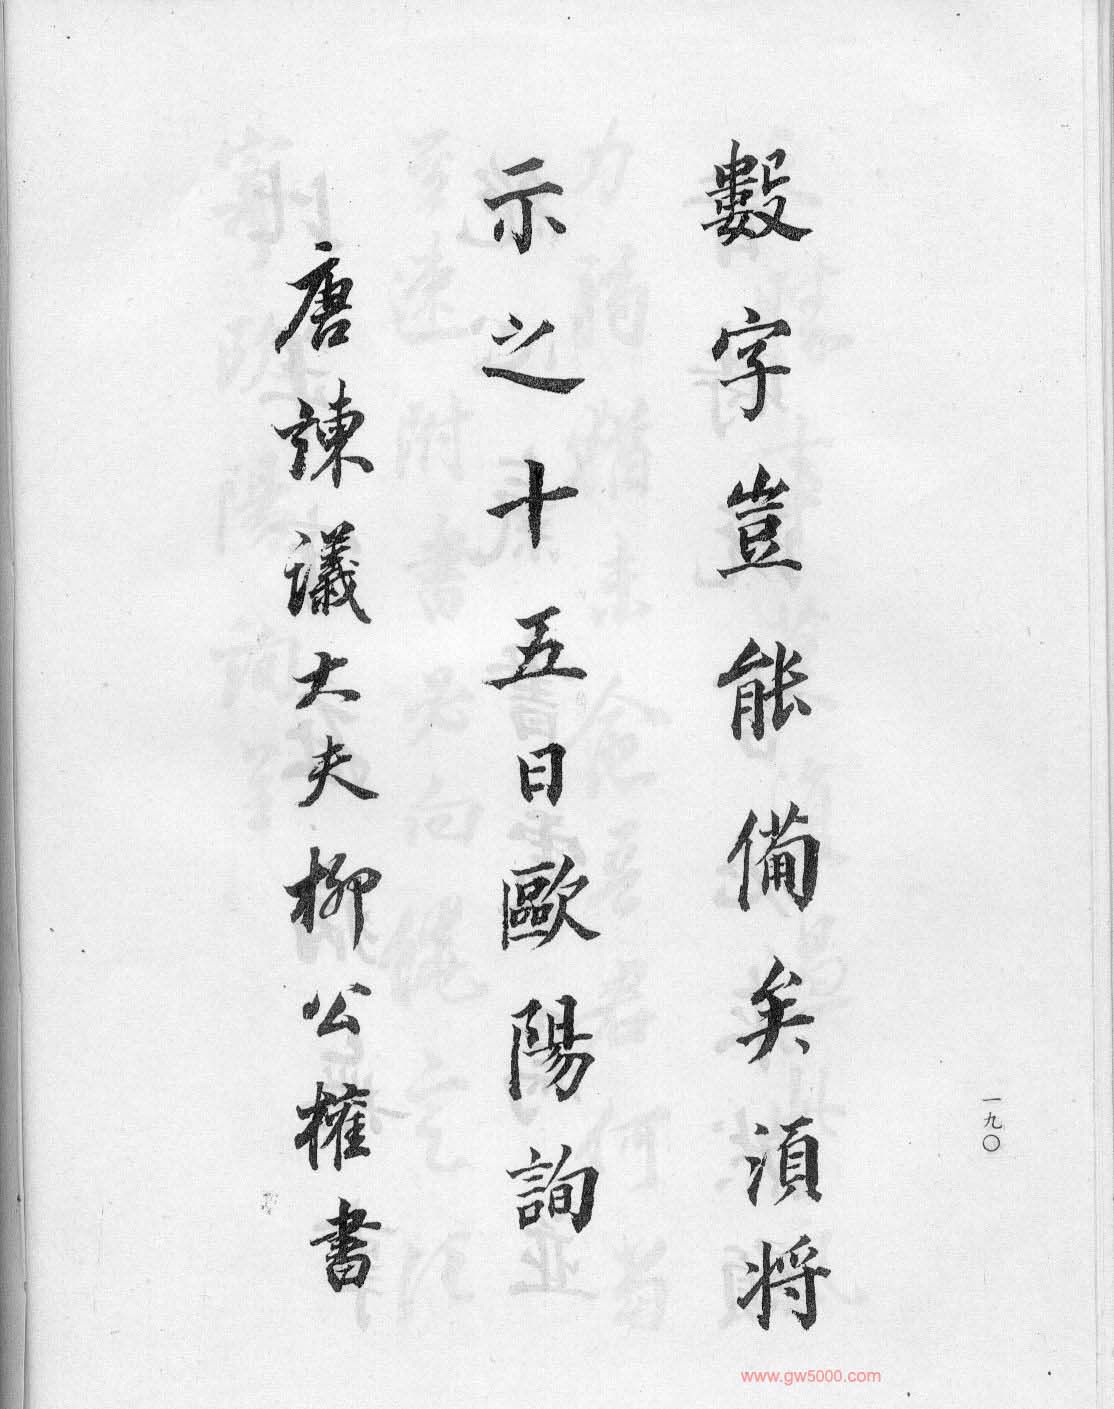 數字豈能備矣須将
示之十五日歐陽詢
唐諫議大夫柳公權書
一九〇
www.gw5000.com